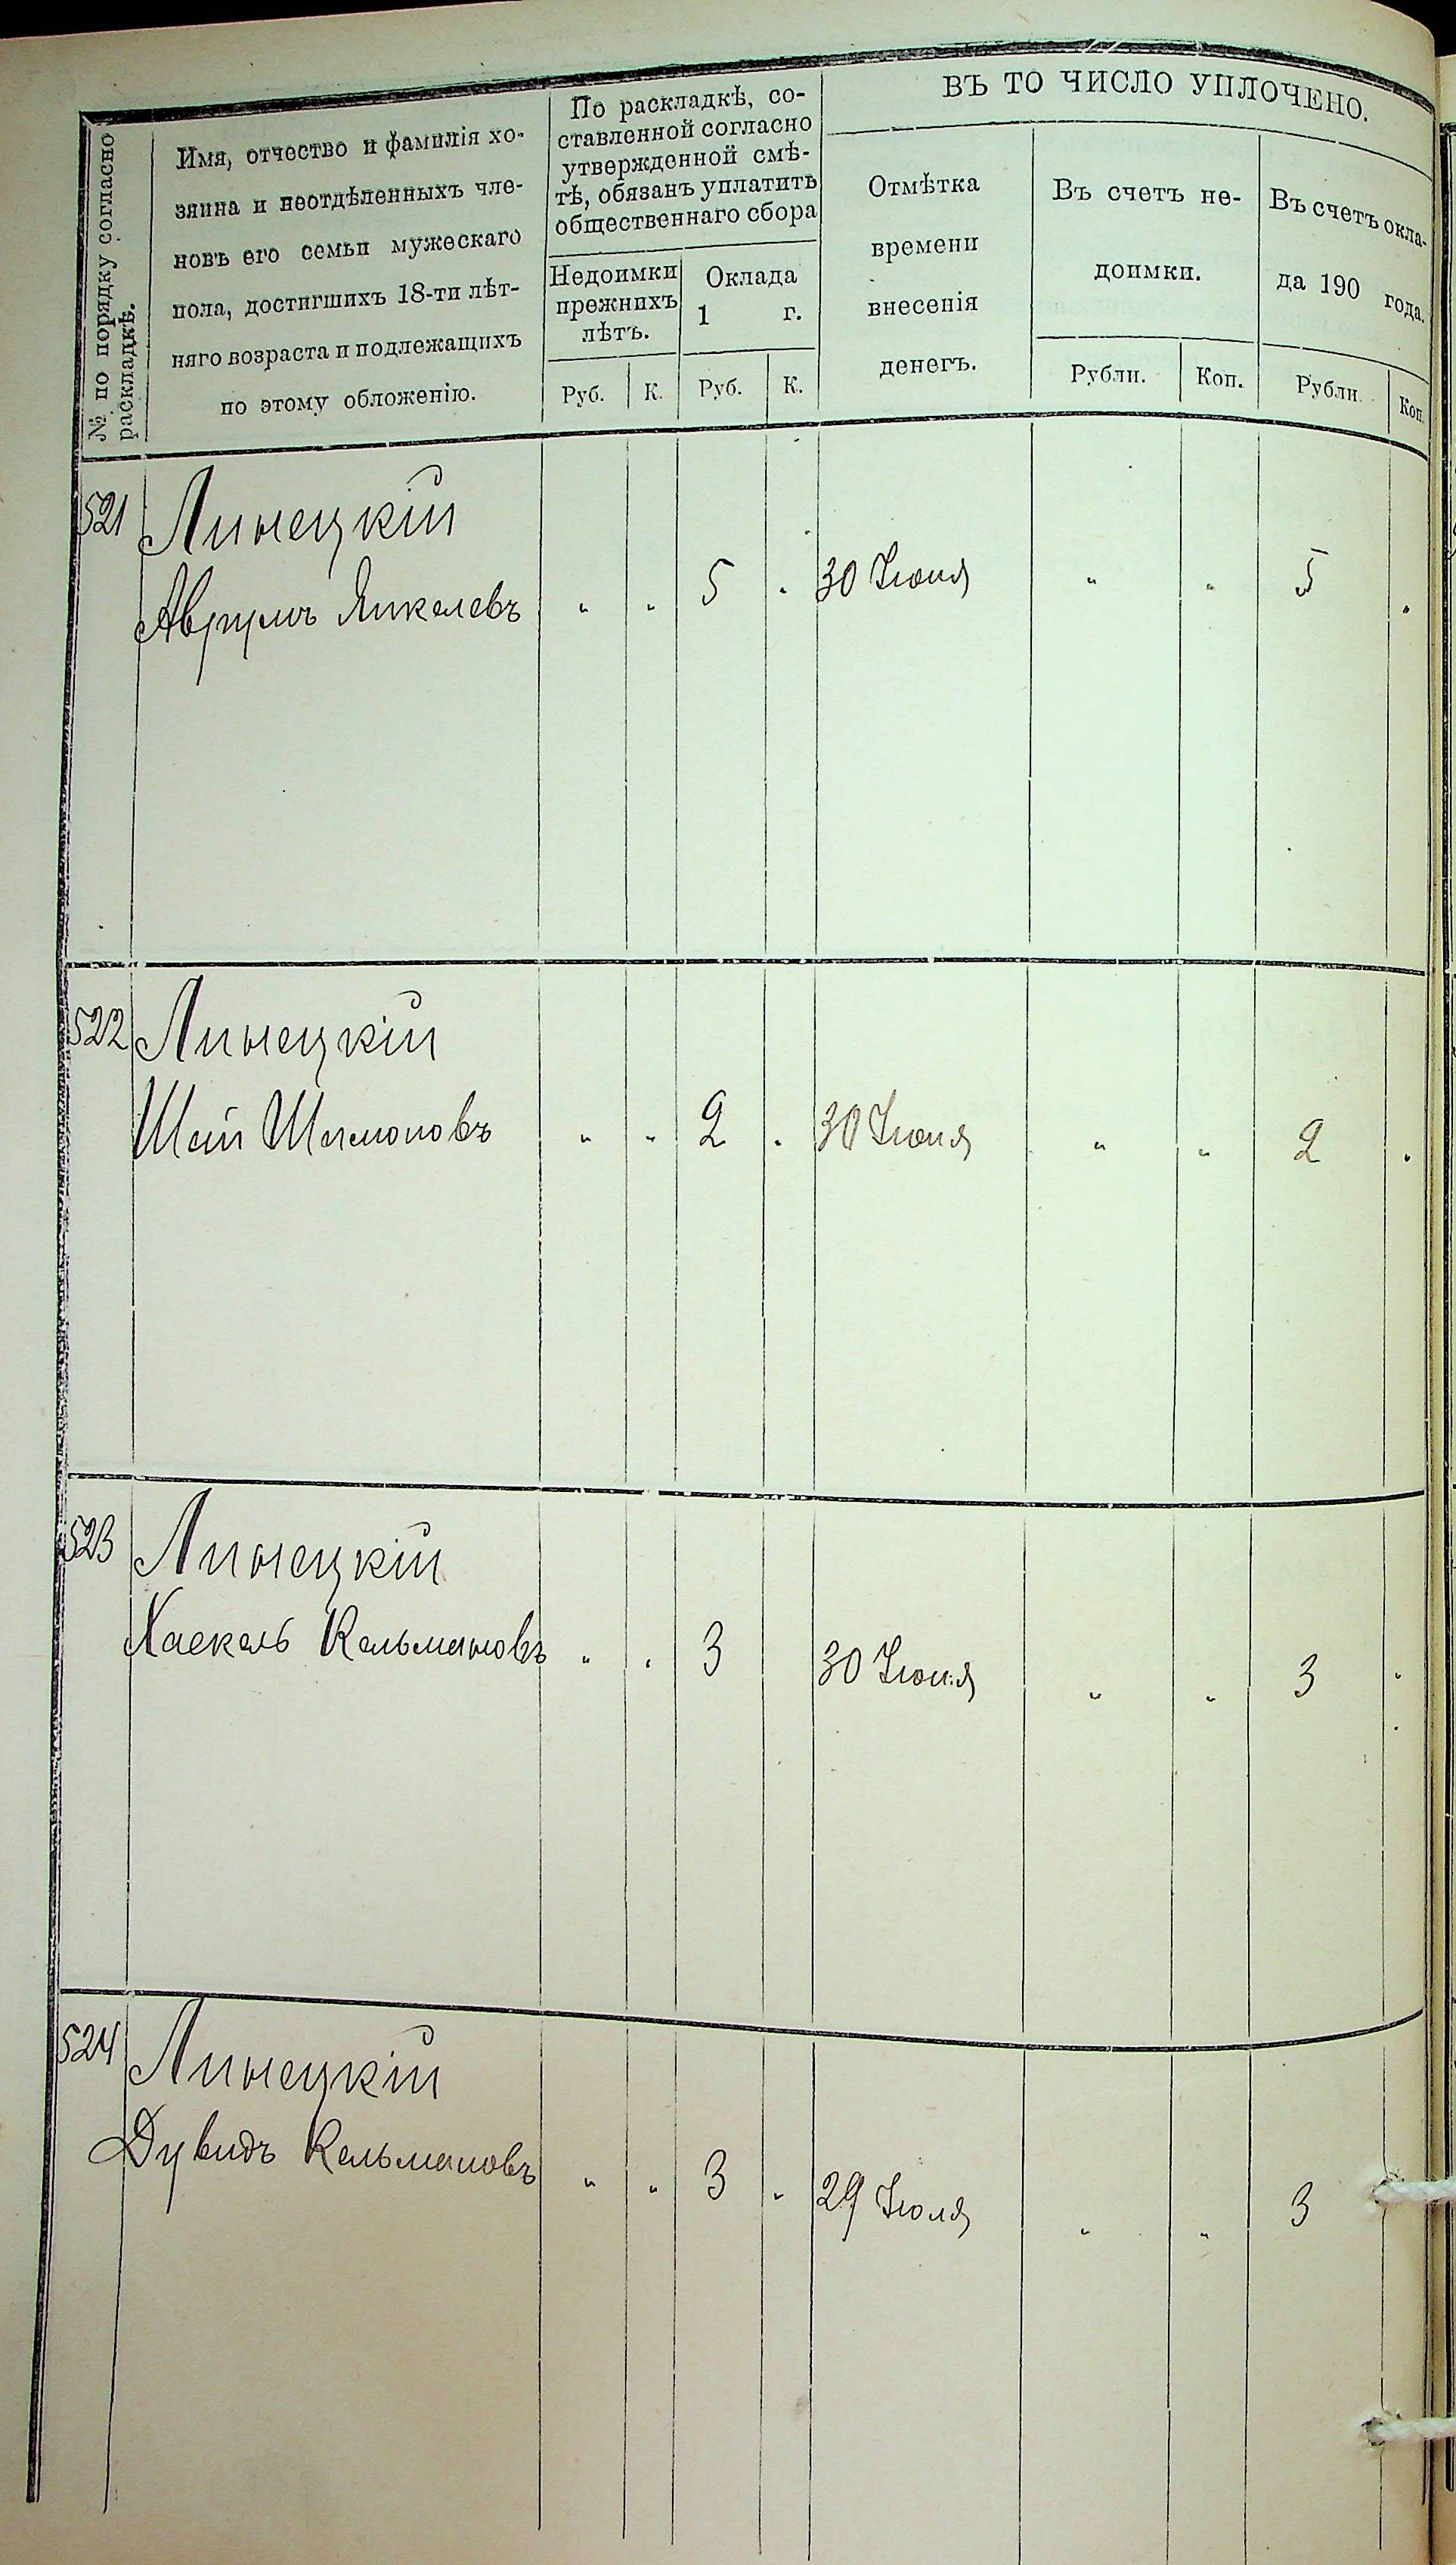 № по порядку согласно
раскладкѣ.
Имя, отчество и фамилія хо-
зяина и неотдѣленныхъ чле-
новъ его семьи мужескаго
пола, достигшихъ 18-ти лѣт-
няго возраста и подлежащихъ
по этому обложенію.
По раскладкѣ, со-
ставленной согласно
утвержденной смѣ-
тѣ, обязанъ уплатить
общественнаго сбора
Недоимки
прежнихъ
лѣтъ.
Оклада
1 г.
Руб. К. Руб. К.
ВЪ ТО ЧИСЛО УПЛОЧЕНО.
Отмѣтка
времени
внесенія
денегъ.
Въ счетъ не-
доимки.
Рубли. Коп.
Въ счетъ окла-
да 190 года.
Рубли. Коп.
521 Линецкій
Аврумъ Янкелевъ „ „ 5 „ 30 Іюня „ „ 5 „
522 Линецкій
Шая Шимоновъ „ „ 2 „ 30 Іюня „ „ 2 „
523 Линецкій
Хаскель Кельмановъ „ „ 3 30 Іюня „ „ 3 „
524 Линецкій
Дувидъ Кельмановъ „ „ 3 „ 29 Іюля „ „ 3